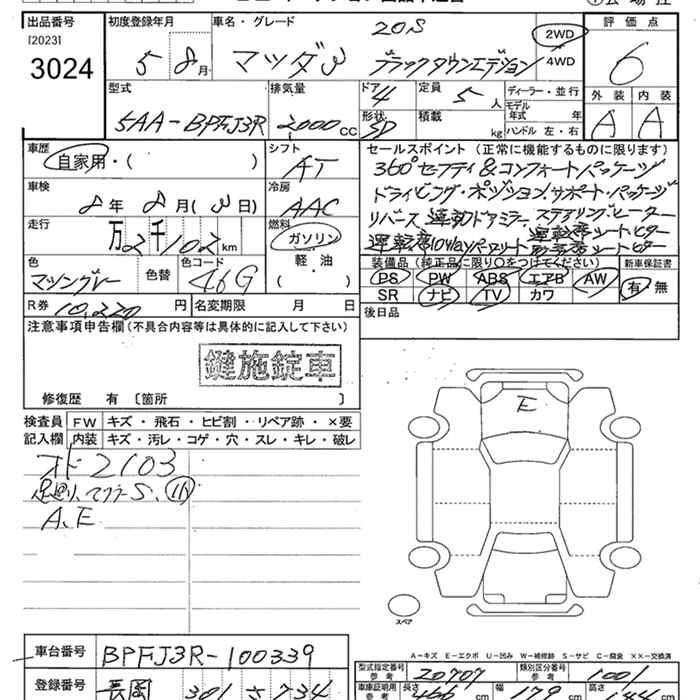 出品番号
[2023]
3024
初度登録年月
5 8月
車名・グレード
20S
マツダ3 ブラックタウンエディション
2WD
4WD
評価点
6
外装 内装
A A
型式
5AA-BPFJ3R
排気量
2000cc
ドア
4
形状
5D
定員
5人
積載
kg
ディーラー・並行
モデル年式 年式
ハンドル 左・右
車歴
自家用・( )
シフト
AT
車検
8年 8月(3日)
冷房
AAC
走行
万2千102km
燃料
ガソリン
軽・油
( )
色
マシングレー
色替
色コード
46G
R券 10,220円
名変期限 月 日
セールスポイント(正常に機能するものに限ります)
360°セーフティ&コンフォートパッケージ
ドライビング・ポジション.サポート・パッケージ
リバース連動ドアミラー ステアリング・ヒーター
運転席10wayパワーシート 運転席シートヒーター
装備品(純正品に限り○をつけてください)
新車保証書
PS PW ABS エアB AW
有 無
SR ナビ TV カワ
後日品
注意事項申告欄(不具合内容等は具体的に記入して下さい)
鍵施錠車
修復歴 有〔箇所
検査員
記入欄
FW キズ・飛石・ヒビ割・リペア跡・×要
内装 キズ・汚レ・コゲ・穴・スレ・キレ・破レ
オド2103
足廻り、マフラーS、小
A、E
E
スペア
A-キズ E-エクボ U-凹み W-補修跡 S-サビ C-腐食 ××-交換済
車台番号
BPFJ3R-100339
登録番号
長岡 301
型式指定番号
参考
20707
類別区分番号
参考
1001
車庫証明用
参考
長さ 466cm
幅 179cm
高さ 144cm